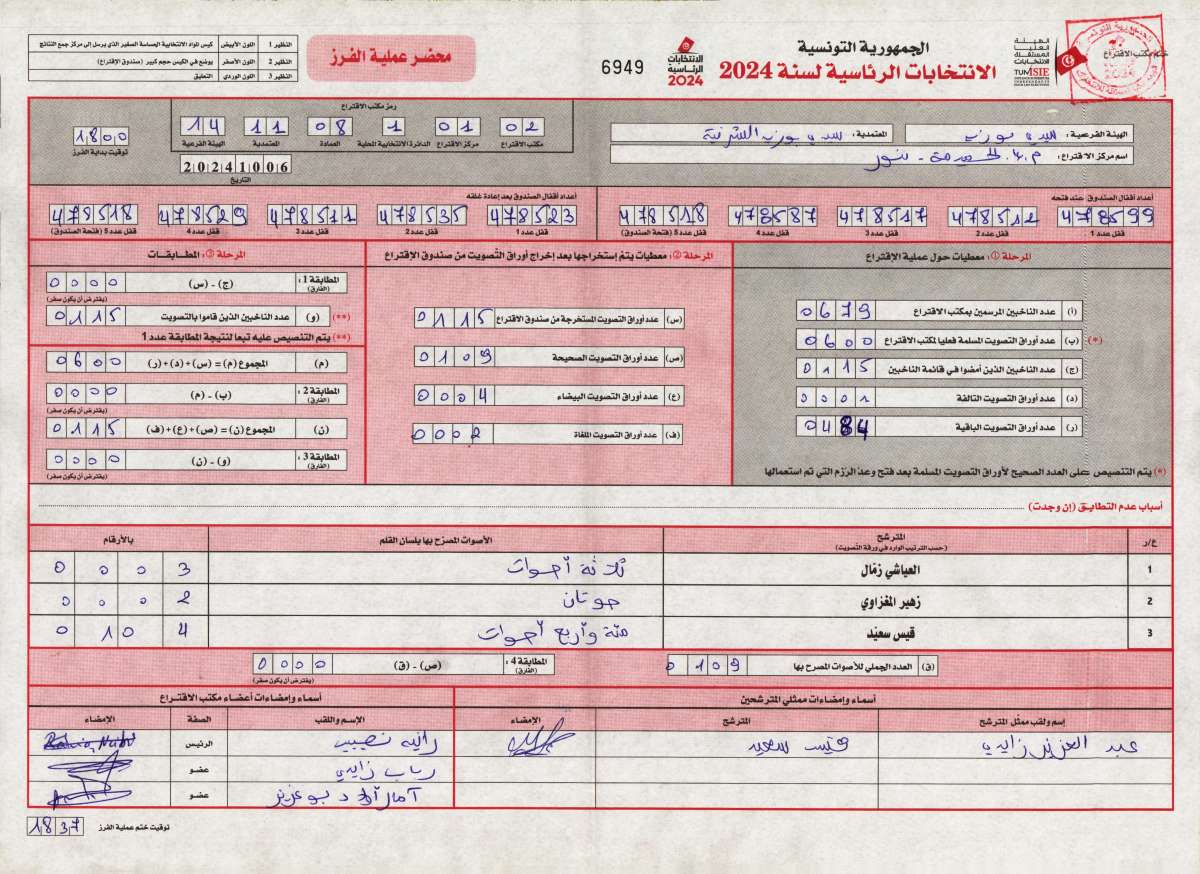 الجمهورية التونسية
الانتخابات الرئاسية لسنة 2024
ختم مكتب الاقتراع
الهيئة
العليا
المستقلة
للانتخابات
TUNISIE
الانتخابات
الرئاسية
2024
6949
محضر عملية الفرز
النظير 1 اللون الأبيض كيس المواد الانتخابية الحساسة الصغير الذي يرسل إلى مركز جمع النتائج
النظير 2 اللون الأصفر يوضع في الكيس حجم كبير (صندوق الإقتراع)
النظير 3 اللون الوردي التعليق
الهيئة الفرعية : سيدي بوزيد
المعتمدية : سيدي بوزيد الشرقية
اسم مركز الاقتراع :
رمز مكتب الاقتراع
02 01 01 1 08 11 14
مكتب الاقتراع مركز الاقتراع الدائرة الانتخابية المحلية العمادة المعتمدية الهيئة الفرعية
20241006
التاريخ
1800
توقيت بداية الفرز
أعداد أقفال الصندوق عند فتحه
478599 478512 478517 478587 478518
قفل عدد 1 قفل عدد 2 قفل عدد 3 قفل عدد 4 قفل عدد 5 (فتحة الصندوق)
أعداد أقفال الصندوق بعد إعادة غلقه
478523 478535 478511 478529 478518
قفل عدد 1 قفل عدد 2 قفل عدد 3 قفل عدد 4 قفل عدد 5 (فتحة الصندوق)
المرحلة ① : معطيات حول عملية الإقتراع
(أ) عدد الناخبين المرسمين بمكتب الاقتراع 0679
(*) (ب) عدد أوراق التصويت المسلمة فعليا لمكتب الاقتراع 0600
(ج) عدد الناخبين الذين أمضوا في قائمة الناخبين 0115
(د) عدد أوراق التصويت التالفة 0001
(ر) عدد أوراق التصويت الباقية 0484
(*) يتم التنصيص على العدد الصحيح لأوراق التصويت المسلمة بعد فتح وعدّ الرّزم التي تم استعمالها
المرحلة ② : معطيات يتم إستخراجها بعد إخراج أوراق التصويت من صندوق الإقتراع
(س) عدد أوراق التصويت المستخرجة من صندوق الاقتراع 0115
(ص) عدد أوراق التصويت الصحيحة 0109
(ع) عدد أوراق التصويت البيضاء 0004
(ف) عدد أوراق التصويت الملغاة 0002
المرحلة ③ : المطابقات
المطابقة 1 : (الفارق) (ج) - (س) 0000
(يفترض أن يكون صفر)
(**) (و) عدد الناخبين الذين قاموا بالتصويت 0115
(**) يتم التنصيص عليه تبعا لنتيجة المطابقة عدد 1
(م) المجموع (م) = (س)+(د)+(ر) 0600
المطابقة 2 : (الفارق) (ب) - (م) 0000
(يفترض أن يكون صفر)
(ن) المجموع (ن) = (ص)+(ع)+(ف) 0115
المطابقة 3 : (الفارق) (و) - (ن) 0000
(يفترض أن يكون صفر)
أسباب عدم التطابق (إن وجدت)
ع/ر المترشح الأصوات المصرّح بها بلسان القلم بالأرقام
(حسب الترتيب الوارد في ورقة التصويت)
1 العياشي زمّال ثلاثة أصوات 0 0 0 3
2 زهير المغزاوي صوتان 0 0 0 2
3 قيس سعيّد مئة وأربع أصوات 0 1 0 4
(ق) العدد الجملي للأصوات المصرح بها 0109
المطابقة 4 : (الفارق) (ص) - (ق) 0000
(يفترض أن يكون صفر)
أسماء وإمضاءات ممثلي المترشحين
إسم ولقب ممثل المترشح المترشح الإمضاء
عبد العزيز زايدي قيس سعيد
أسماء وإمضاءات أعضاء مكتب الاقتراع
الإسم واللقب الصفة الإمضاء
رانية نصيبي الرئيس
رباب زايدي عضو
آمال أولاد بوعزيز عضو
1837 توقيت ختم عملية الفرز